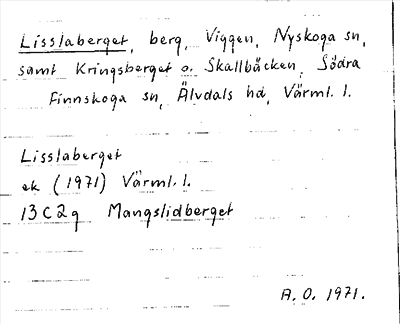 Lisslaberget, berg, Viggen, Nyskoga sn,
samt Kringsberget o. Skallbäcken, Södra
Finnskoga sn, Älvdals hd, Värml. l.
Lisslaberget
ek (1971) Värml. l.
13C2g Mangslidberget
A. O. 1971.